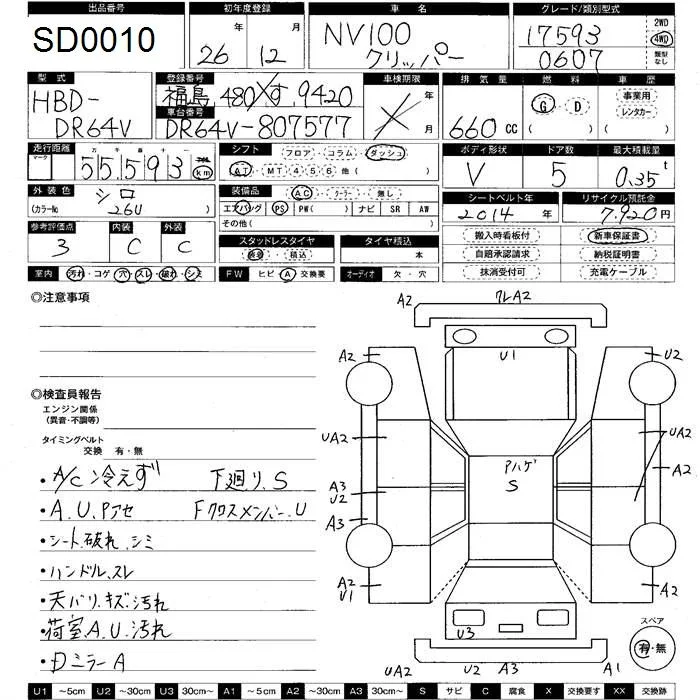 出品番号 初年度登録 車名 グレード/類別型式
SD0010 26 12 NV100 クリッパー 17593 0607 2WD 4WD 類型なし
型式 登録番号 車検期限 排気量 燃料 車歴
HBD-DR64V 福島 480 す 9420 年 月 660 cc G・D ( ) 事業用 レンタカー ( )
車台番号
DR64V-807577
走行距離 シフト フロア・コラム・ダッシュ ボディ形状 ドア数 最大積載量
マーク 万 千 百 十 一 55,593 km AT MT 4 5 6 他( ) V 5 0.35t
外装色 シロ 装備品 AC・クーラー・無し シートベルト年 リサイクル預託金
(カラーNo 26U ) エアバッグ PS PW( ) ナビ SR AW 2014年 7,920円
その他( )
参考評価点 内装 外装 スタッドレスタイヤ タイヤ積込 搬入時看板付 新車保証書
3 C C 装着・積込 本 自賠承認請求 納税証明書
室内 汚れ・コゲ・穴・スレ・破れ・シミ FW ヒビ・A・交換要 オーディオ 欠・穴 抹消受付可 充電ケーブル
◎注意事項
◎検査員報告
エンジン関係
(異音・不調等)
タイミングベルト
交換 有・無
・A/C 冷えず 下廻り、S
・A.U.Pアセ Fクロスメンバー.U
・シート.破れ.シミ
・ハンドル.スレ
・天バリ.キズ.汚れ
・荷室.A.U.汚れ
・Dミラー A
A2 クレA2
A2 U1 U2
UA2 UA2
アハゲ A2
A3 S
U2
A3
A2 A2
U1
U3
UA2 U2 A3 A1
スペア
有・無
U1 ~5cm U2 ~30cm U3 30cm~ A1 ~5cm A2 ~30cm A3 30cm~ S サビ C 腐食 X 交換要す XX 交換跡